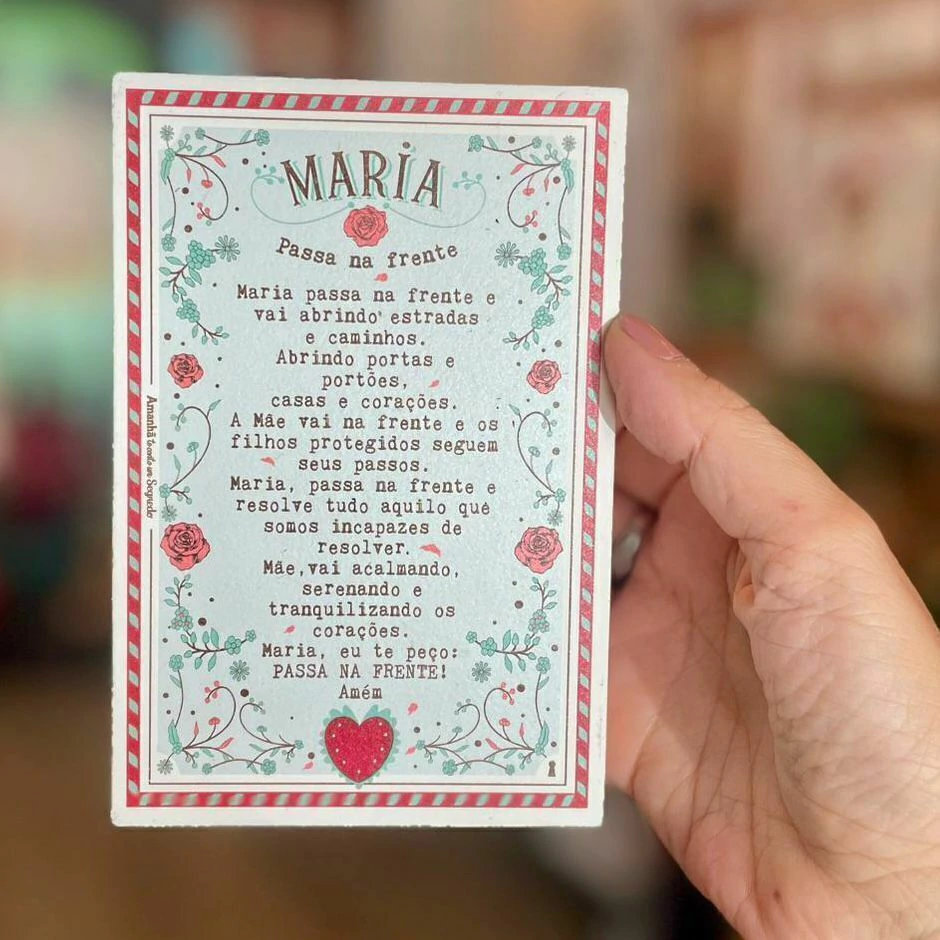 MARIA
Passa na frente
Maria passa na frente e
vai abrindo estradas
e caminhos.
Abrindo portas e
portões,
casas e corações.
A Mãe vai na frente e os
filhos protegidos seguem
seus passos.
Maria, passa na frente e
resolve tudo aquilo que
somos incapazes de
resolver.
Mãe,vai acalmando,
serenando e
tranquilizando os
corações.
Maria, eu te peço:
PASSA NA FRENTE!
Amém
Amanhã te conto um Segredo